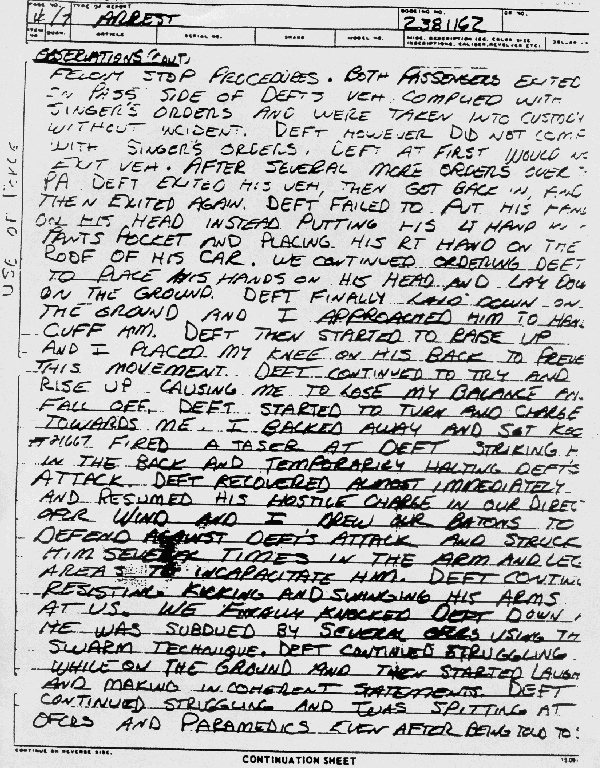 PAGE NO.
TYPE OF REPORT
BOOKING NO.
DR NO.
4/7 ARREST
2381162
ITEM NO
QUAN.
ARTICLE
SERIAL NO.
BRAND
MODEL NO.
MISC. DESCRIPTION (EG. COLOR SIZE
INSCRIPTIONS, CALIBER, REVOLVER ETC)
DOLLAR
OBSERVATIONS (CONT)
FELONY STOP PROCEDURES. BOTH PASSENGERS EXITED
ON PASS SIDE OF DEFTS VEH COMPLIED WITH
SINGER'S ORDERS AND WERE TAKEN INTO CUSTODY
WITHOUT INCIDENT. DEFT HOWEVER DID NOT COMP
WITH SINGER'S ORDERS. DEFT AT FIRST WOULD N
EXIT VEH. AFTER SEVERAL MORE ORDERS OVER
PA DEFT EXITED HIS VEH, THEN GOT BACK IN, AND
THEN EXITED AGAIN. DEFT FAILED TO PUT HIS HAN
ON HIS HEAD INSTEAD PUTTING HIS LT HAND IN
PANTS POCKET AND PLACING HIS RT HAND ON THE
ROOF OF HIS CAR. WE CONTINUED ORDERING DEFT
TO PLACE HIS HANDS ON HIS HEAD AND LAY DOW
ON THE GROUND. DEFT FINALLY LAID DOWN ON
THE GROUND AND I APPROACHED HIM TO HAN
CUFF HIM. DEFT THEN STARTED TO RAISE UP
AND I PLACED MY KNEE ON HIS BACK TO PREVE
THIS MOVEMENT. DEFT CONTINUED TO TRY AND
RISE UP CAUSING ME TO LOSE MY BALANCE AN
FALL OFF. DEFT STARTED TO TURN AND CHARGE
TOWARDS ME. I BACKED AWAY AND SGT KOO
#21667 FIRED A TASER AT DEFT STRIKING H
IN THE BACK AND TEMPORARILY HALTING DEFTS
ATTACK. DEFT RECOVERED ALMOST IMMEDIATELY
AND RESUMED HIS HOSTILE CHARGE IN OUR DIREC
OFCR WIND AND I DREW OUR BATONS TO
DEFEND AGAINST DEFT'S ATTACK AND STRUCK
HIM SEVERAL TIMES IN THE ARM AND LEG
AREAS TO INCAPACITATE HIM. DEFT CONTINU
RESISTING KICKING AND SWINGING HIS ARMS
AT US. WE FINALLY KNOCKED DEFT DOWN A
HE WAS SUBDUED BY SEVERAL OFCRS USING TH
SWARM TECHNIQUE. DEFT CONTINUED STRUGGLING
WHILE ON THE GROUND AND THEN STARTED LAUGH
AND MAKING INCOHERENT STATEMENTS. DEFT
CONTINUED STRUGGLING AND WAS SPITTING AT
OFCRS AND PARAMEDICS EVEN AFTER BEING TOLD TO
USE OF FORCE
CONTINUE ON REVERSE SIDE.
CONTINUATION SHEET